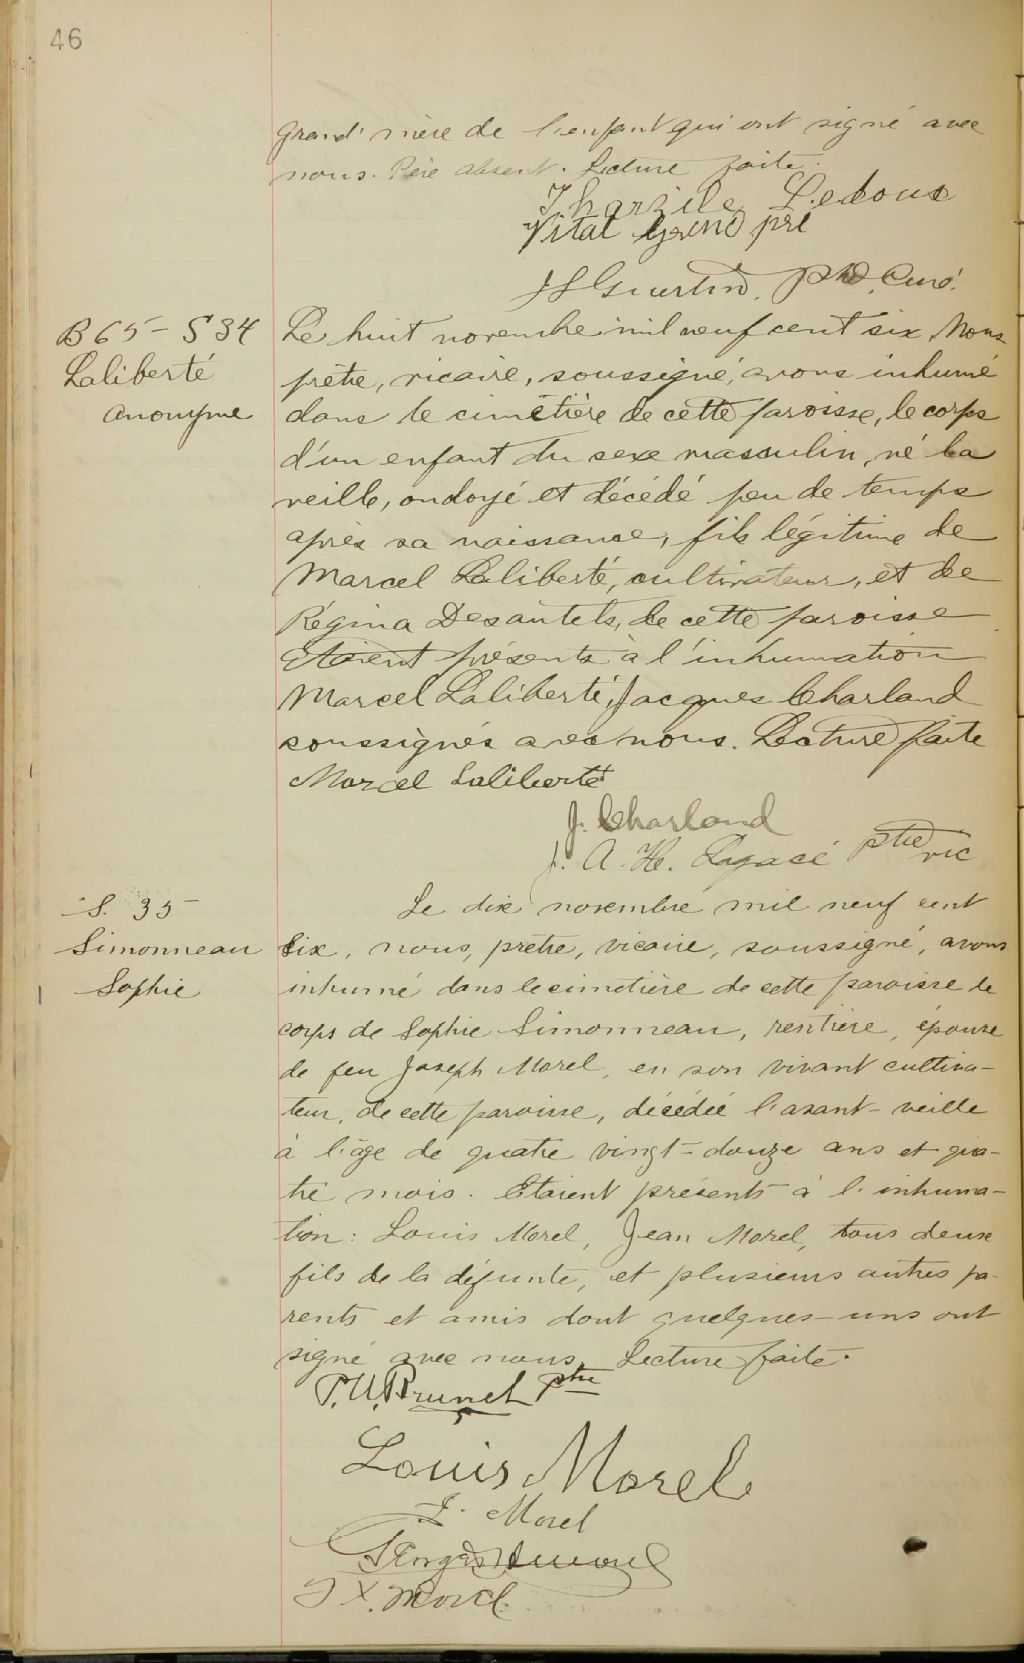 46
grand'mère de l'enfant qui ont signé avec
nous. Père absent. Lecture faite.
Tharzile Ledoux
Vital Grend pré
Ptre Curé.
B 65 - S 34
Laliberté
anonyme
Le huit novembre mil neuf cent six, Nous
prêtre, vicaire, soussigné, avons inhumé
dans le cimetière de cette paroisse, le corps
d'un enfant du sexe masculin, né la
veille, ondoyé et décédé peu de temps
après sa naissance, fils légitime de
Marcel Laliberté, cultivateur, et de
Régina Desautels, de cette paroisse
Etaient présents à l'inhumation
Marcel Laliberté, Jacques Charland
soussignés avec nous. Lecture faite
Marcel Laliberté
J. Charland
J. A. H. Lagacé ptre vic
S. 35
Simonneau
Sophie
Le dix novembre mil neuf cent
six, nous, prêtre, vicaire, soussigné, avons
inhumé dans le cimetière de cette paroisse le
corps de Sophie Simonneau, rentière, épouse
de feu Joseph Morel, en son vivant cultiva-
teur, de cette paroisse, décédée l'avant-veille
à l'âge de quatre vingt-douze ans et qua-
tre mois. Etaient présents à l'inhuma-
tion: Louis Morel, Jean Morel, tous deux
fils de la défunte, et plusieurs autres pa-
rents et amis dont quelques-uns ont
signé avec nous. Lecture faite.
P.U. Brunet Ptre
Louis Morel
J. Morel
J X. Morel